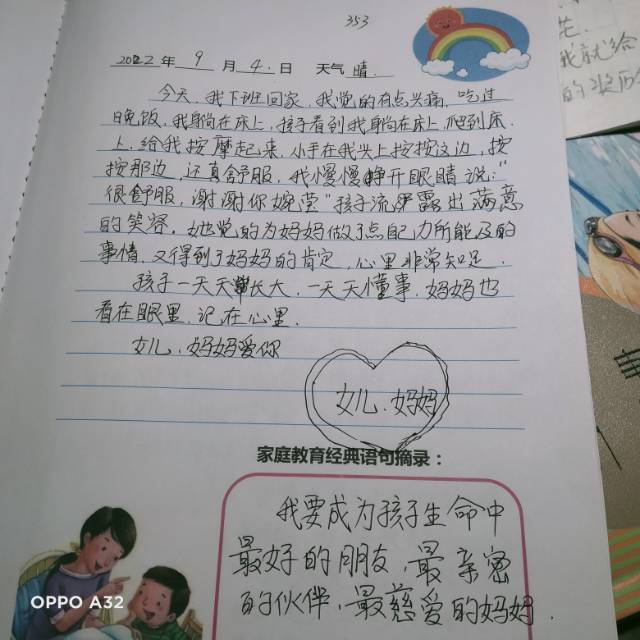 353
2022年 9 月 4.日 天气 晴.
今天,我下班回家,我觉的有点头痛,吃过
晚饭,我躺在床上,孩子看到我躺在床上,爬到床
上,给我按摩起来,小手在我头上按按这边,按
按那边,还真舒服,我慢慢睁开眼睛说:"
很舒服,谢谢你婉莹"孩子流露出满意
的笑容,她觉的为妈妈做了点自己力所能及的
事情,又得到了妈妈的肯定,心里非常知足.
孩子一天天长大,一天天懂事,妈妈也
看在眼里,记在心里.
女儿.妈妈爱你
女儿.妈妈
家庭教育经典语句摘录:
我要成为孩子生命中
最好的朋友,最亲密
的伙伴,最慈爱的妈妈.
花.
我就给
的
OPPO A32